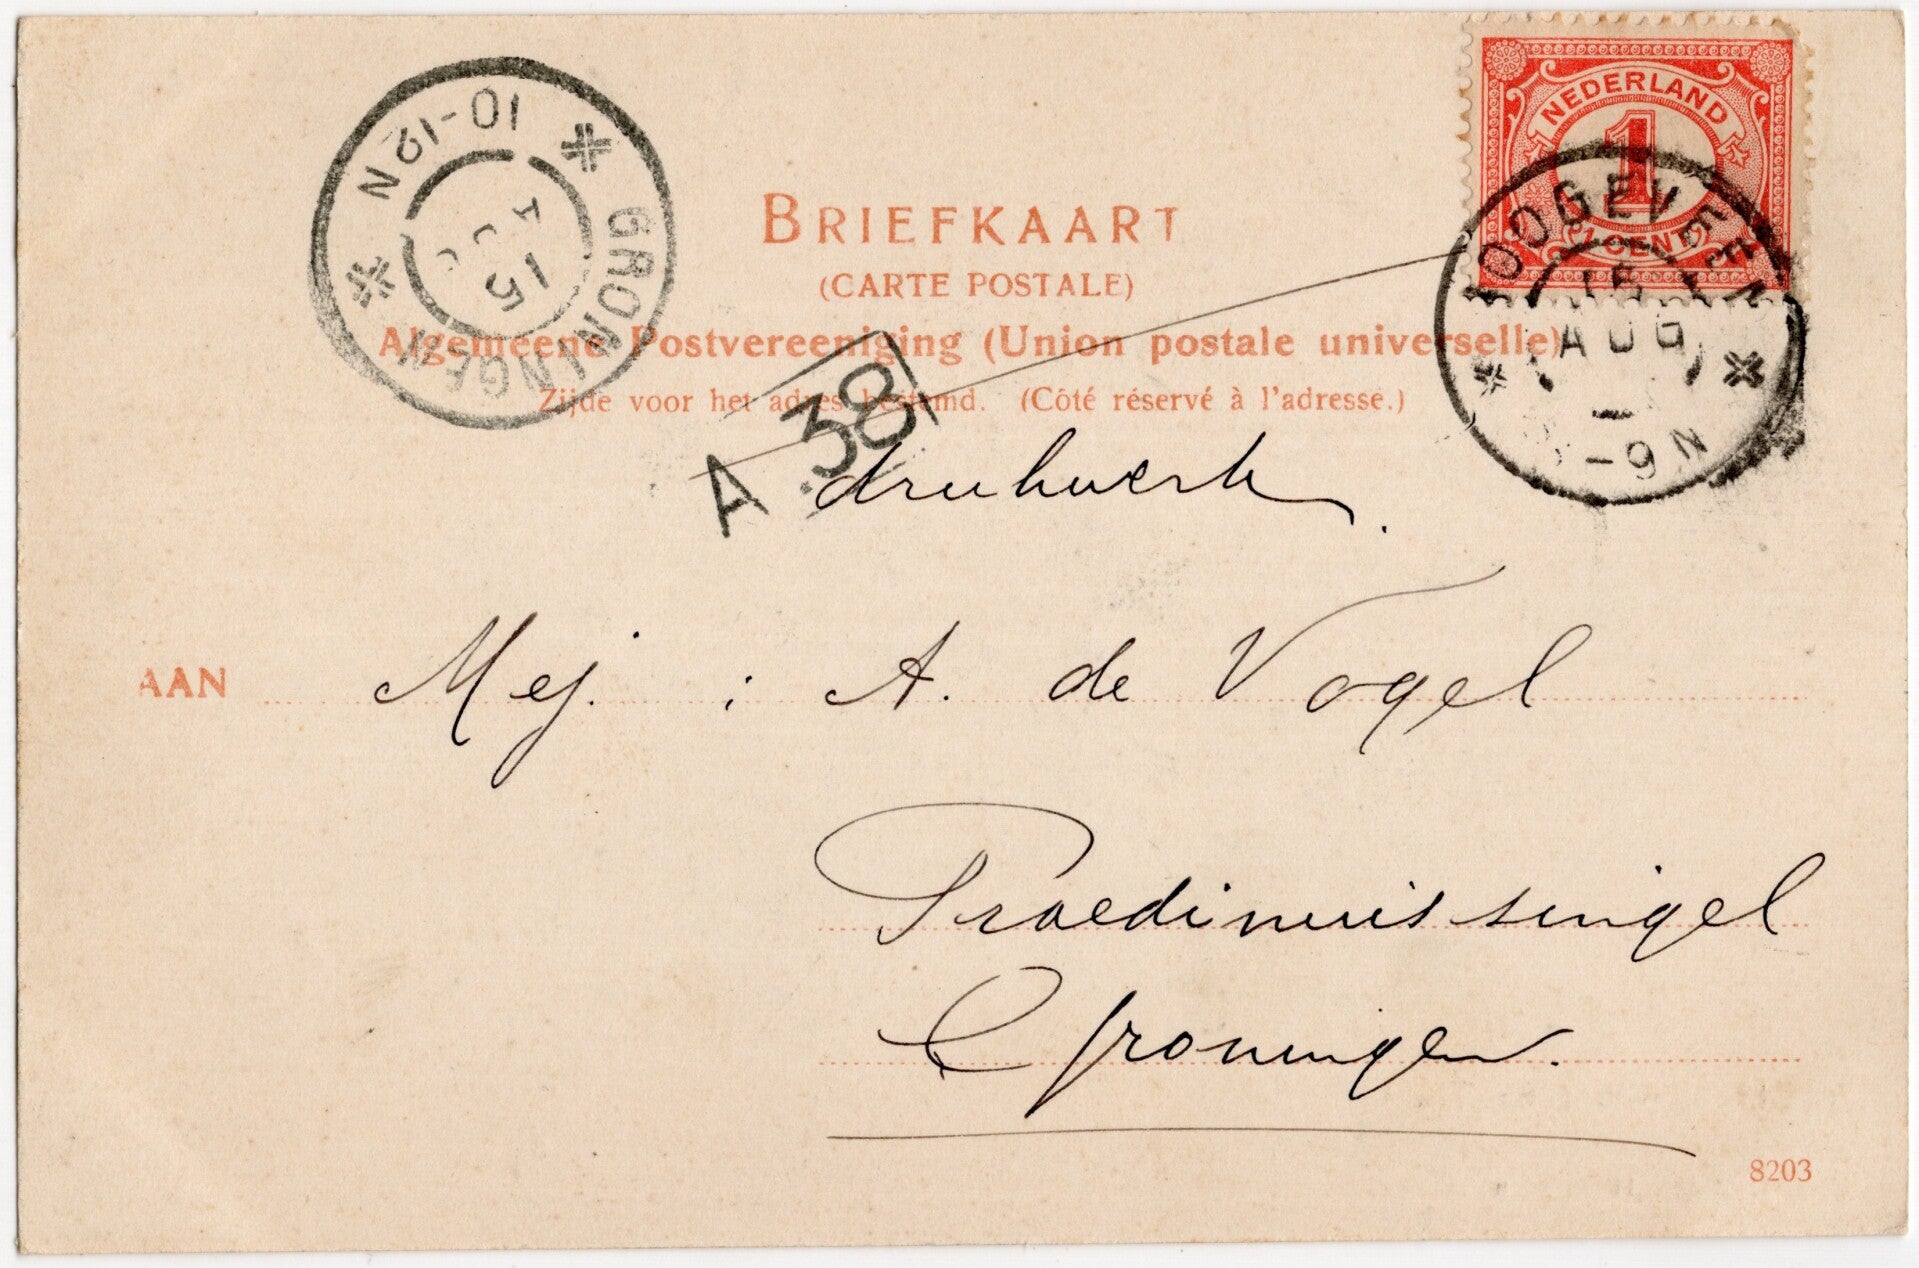 NEDERLAND
1
1 CENT
HOOGEVEEN
15
AUG
-9N
GRONINGEN
10-12N
15
BRIEFKAART
(CARTE POSTALE)
Algemeene Postvereeniging (Union postale universelle)
Zijde voor het adres bestemd. (Côté réservé à l'adresse.)
A 38
drukwerk.
AAN Mej. : A. de Vogel
Praedinuissingel
Groningen.
8203